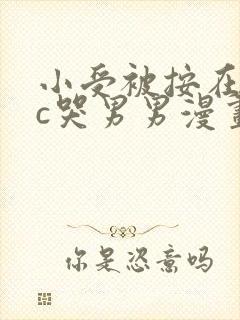 小受被按在
c哭男男漫畫
你是恣意吗